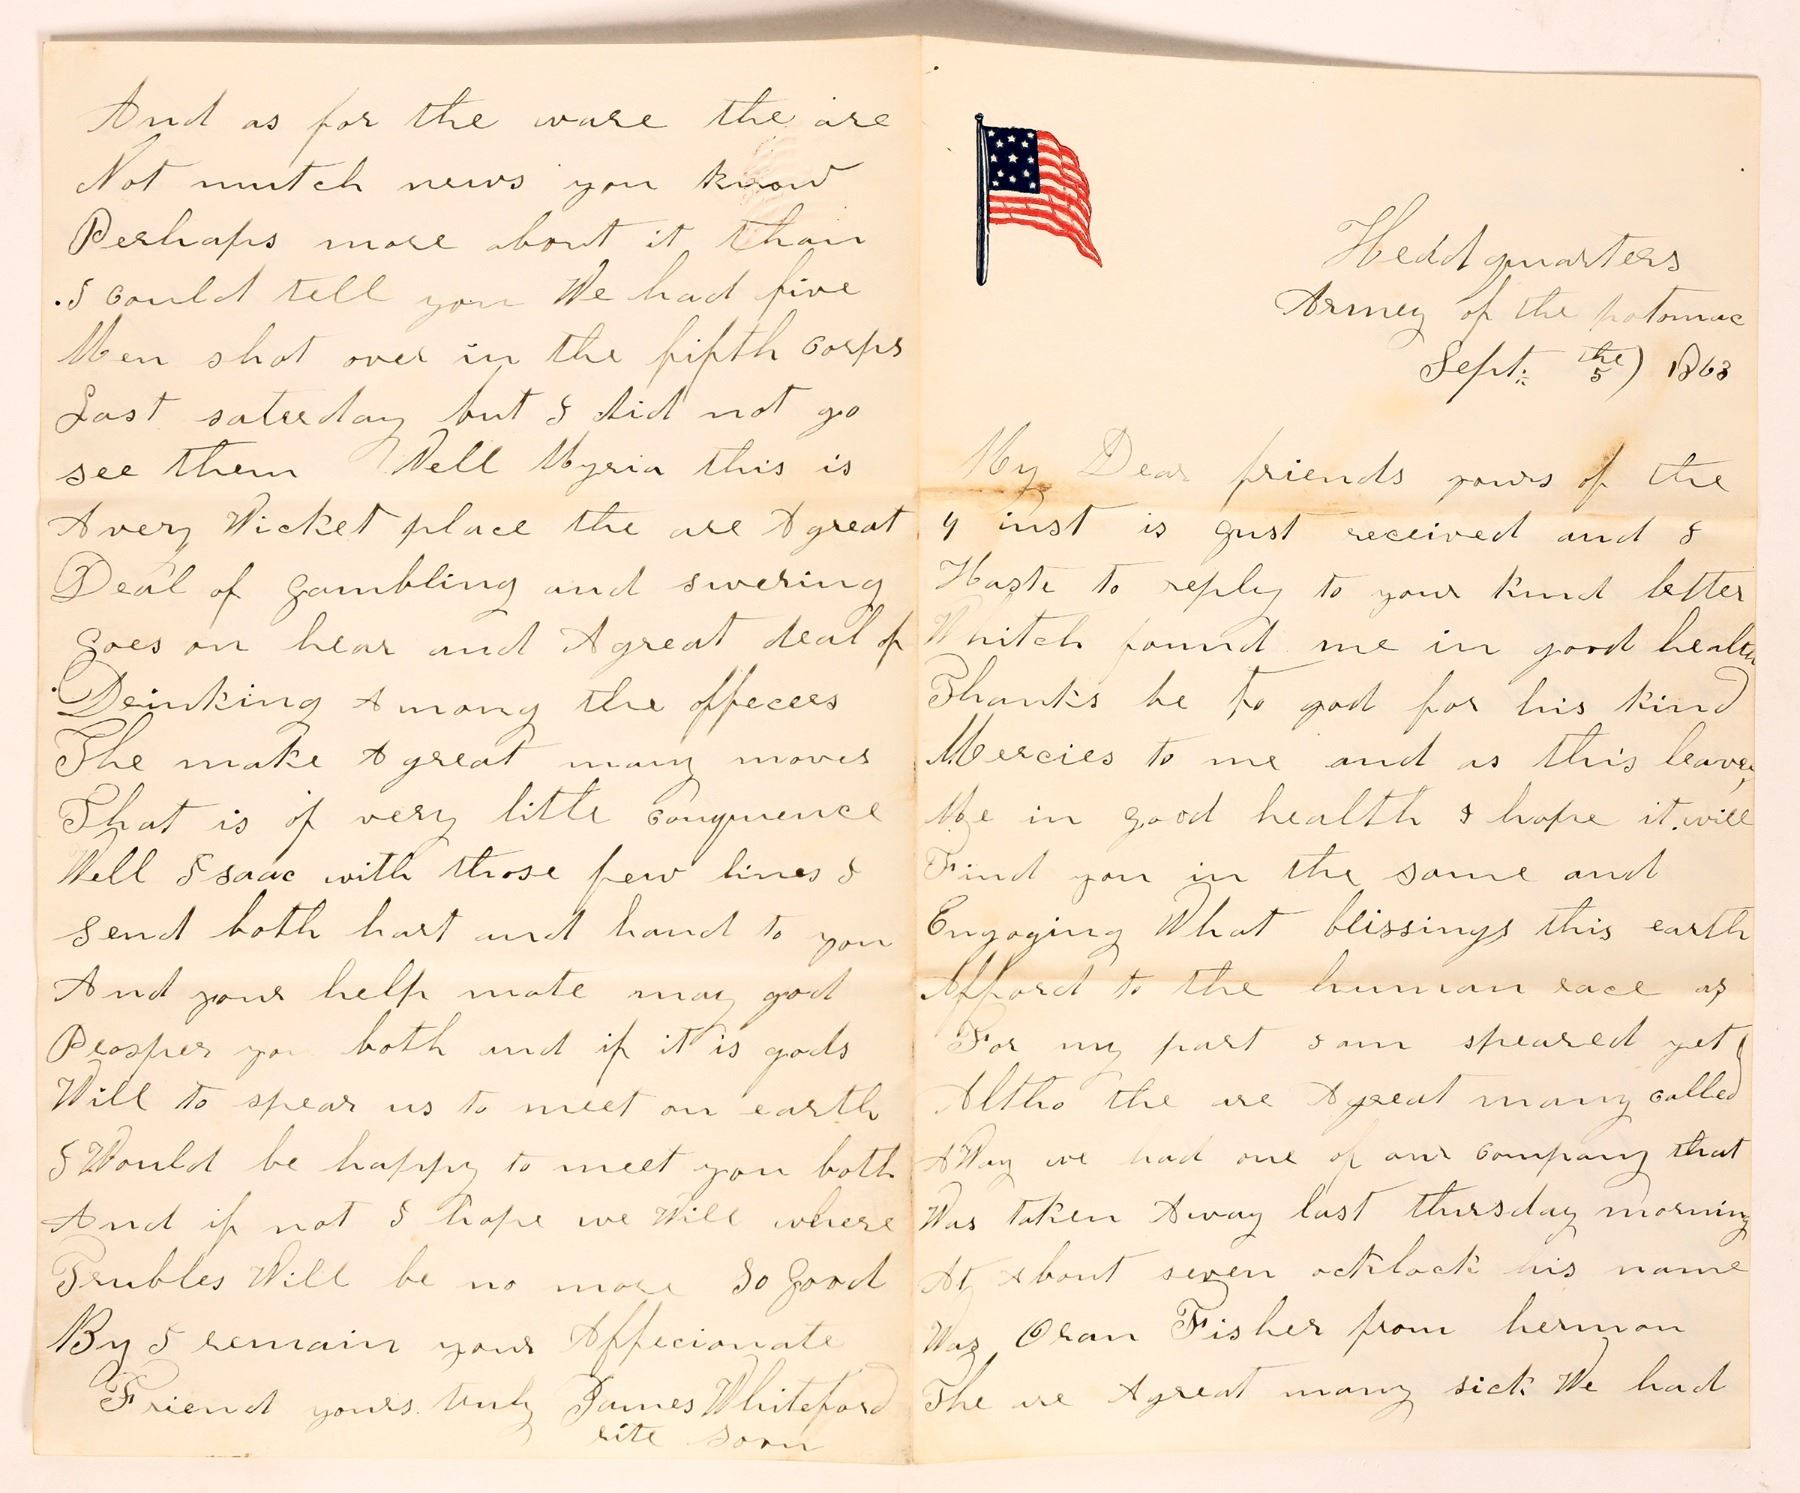 Hedd quarters
Armey of the potomac
Sept. the 5) 1863
My Dear friends yours of the
inst is gust received and I
Haste to reply to your kind letter
Whitch found me in good health
Thanks be to god for his kind
Mercies to me and as this leaves
Me in good health I hope it will
Find you in the same and
Engoging What blissings this earth
Afford to the human race as
For my part I am speared yet
Altho the are A great many called
A Way we had one of our company that
Was taken Away last thursday morning
At about seven ocklock his name
Was Oran Fisher from hermon
The are A great many sick We had
And as for the ware the are
Not mutch news you know
Perhaps more about it than
I could tell you We had five
Men shot over in the fifth corps
Last saterday but I did not go
see them Well Myria this is
A very Wicket place the are A great
Deal of gambling and swering
goes on hear and A great deal of
Drinking Among the offecers
The make A great many moves
That is of very little conquence
Well Isaac with those few lines I
send both hart and hand to you
And your help mate may god
Prosper you both and if it is gods
Will to spear us to meet on earth
I Would be happy to meet you both
And if not I hope we Will where
Trubles Will be no more So good
By I remain your Affecionate
Friend yours truly James Whiteford
rite soon